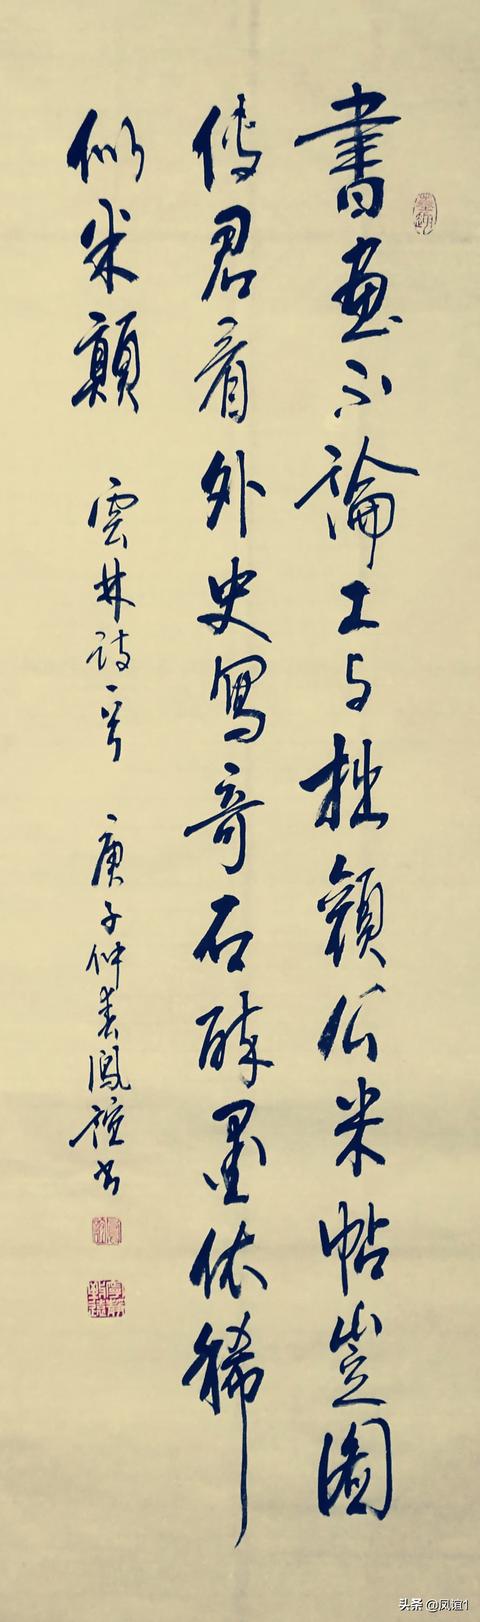 書畫不論工与拙顏公米帖豈圖
傳君看外史寫奇石醉墨依稀
似米顛
雲林詩一首 庚子仲春鳳誼书
头条 @凤谊1